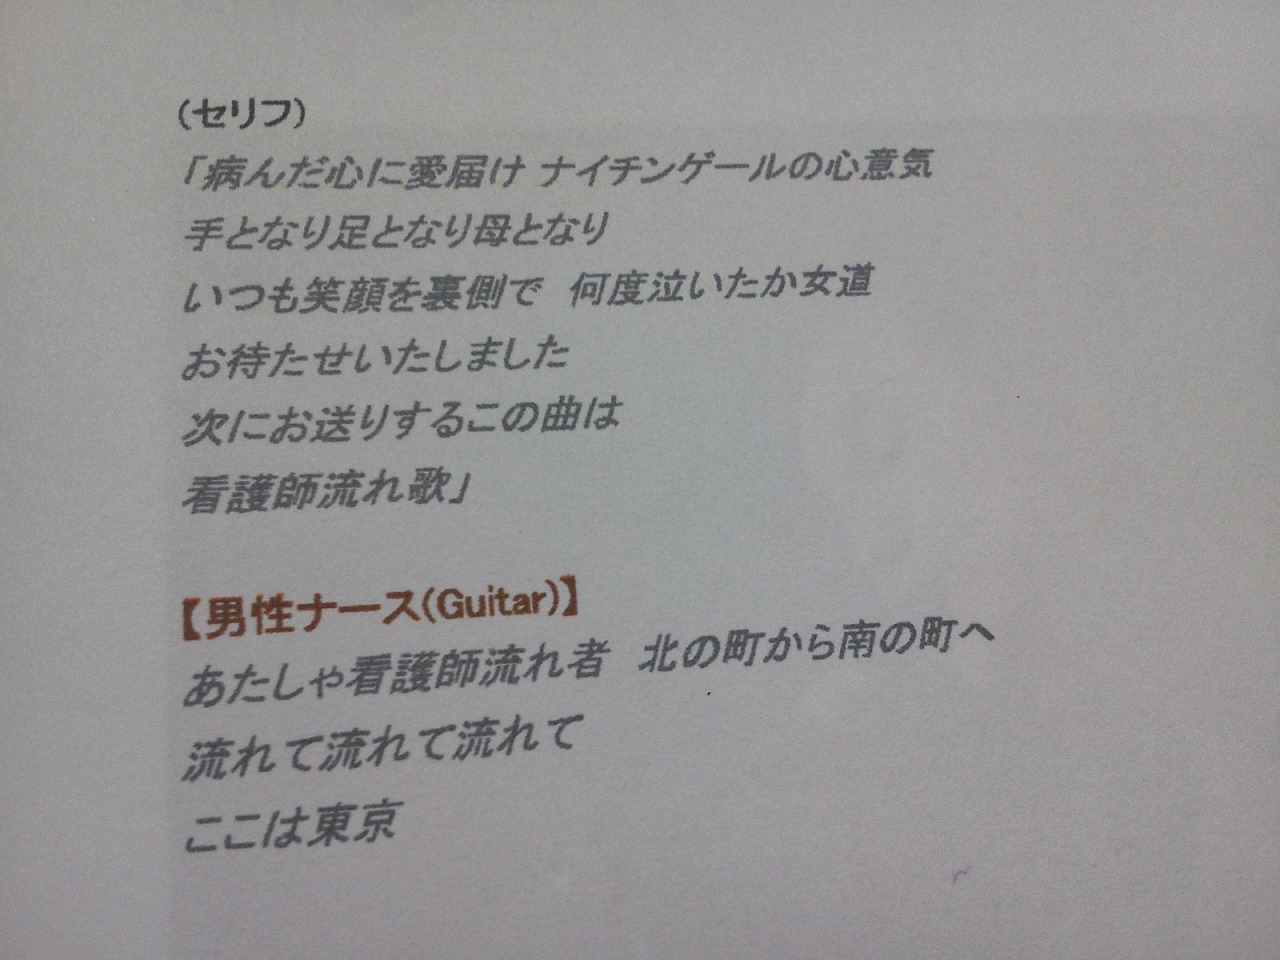 (セリフ)
「病んだ心に愛届け ナイチンゲールの心意気
手となり足となり母となり
いつも笑顔を裏側で 何度泣いたか女道
お待たせいたしました
次にお送りするこの曲は
看護師流れ歌」
【男性ナース(Guitar)】
あたしゃ看護師流れ者 北の町から南の町へ
流れて流れて流れて
ここは東京